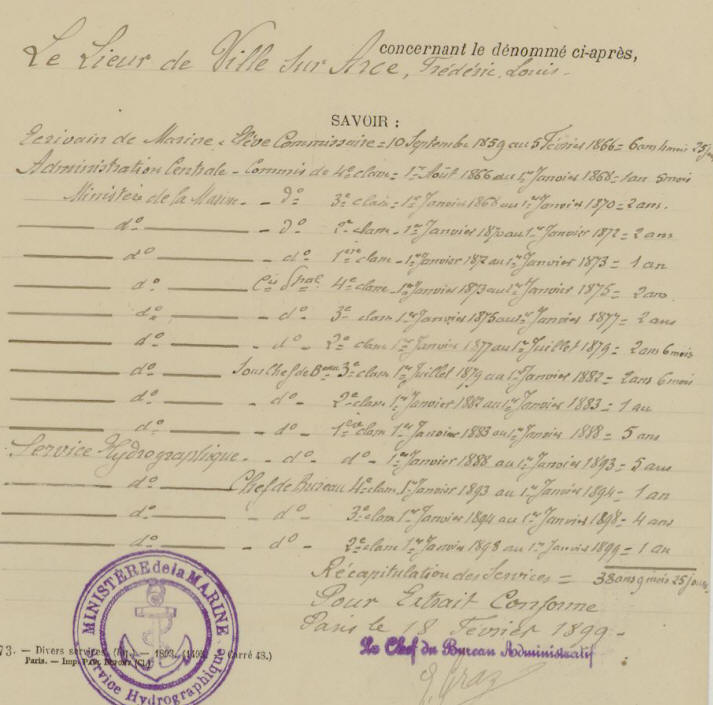 concernant le dénommé ci-après,
Le Lieur de Ville sur Arce, Frédéric, Louis.
SAVOIR :
Ecrivain de Marine - Elève Commissaire = 10 Septembre 1859 au 5 Février 1866 = 6 ans 4 mois 25 j
Administration Centrale - Commis de 4e classe = 1er Août 1866 au 1er Janvier 1868 = 1 an 5 mois
Ministère de la Marine - do 3e classe = 1er Janvier 1868 au 1er Janvier 1870 = 2 ans.
do - do 2e classe - 1er Janvier 1870 au 1er Janvier 1872 = 2 ans
do - do 1ère classe - 1er Janvier 1872 au 1er Janvier 1873 = 1 an
do Cis Ppal 4e classe - 1er Janvier 1873 au 1er Janvier 1875 = 2 ans
do - do - 3e classe 1er Janvier 1875 au 1er Janvier 1877 = 2 ans
do - do - 2e classe 1er Janvier 1877 au 1er Juillet 1879 = 2 ans 6 mois
do Sous Chef de Beau 3e classe 1er Juillet 1879 au 1er Janvier 1882 = 2 ans 6 mois
do - do - 2e classe 1er Janvier 1882 au 1er Janvier 1883 = 1 an
do - do - 1ère classe 1er Janvier 1883 au 1er Janvier 1888 = 5 ans
Service Hydrographique - do do - 1er Janvier 1888 au 1er Janvier 1893 = 5 ans
do Chef de Bureau 4e classe 1er Janvier 1893 au 1er Janvier 1894 = 1 an
do - do - 3e classe 1er Janvier 1894 au 1er Janvier 1898 = 4 ans
do - do - 2e classe 1er Janvier 1898 au 1er Janvier 1899 = 1 an
Récapitulation des Services = 38 ans 9 mois 25 jours
Pour Extrait Conforme
Paris le 18 Février 1899 -
Le Chef du Bureau Administratif
MINISTÈRE de la MARINE
Service Hydrographique
73. — Divers services. — 1893. (Carré 48.)
Paris. — Imp.